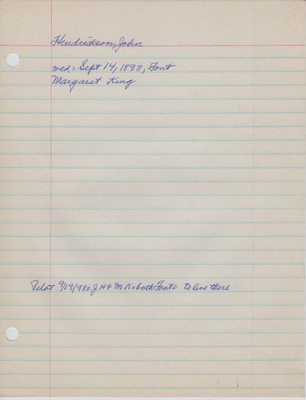 Hendrickson, John
med = Sept 14, 1898, Font
Margaret King
JH & MK both Font to live there